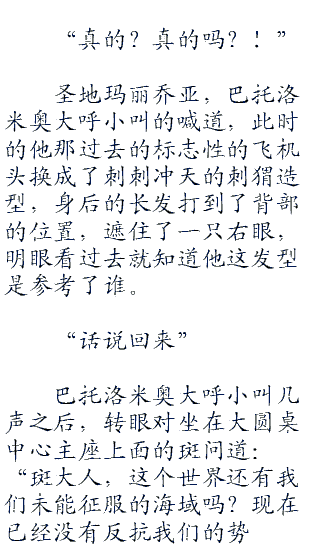 “真的？真的吗？！”
圣地玛丽乔亚，巴托洛
米奥大呼小叫的喊道，此时
的他那过去的标志性的飞机
头换成了刺刺冲天的刺猬造
型，身后的长发打到了背部
的位置，遮住了一只右眼，
明眼看过去就知道他这发型
是参考了谁。
“话说回来”
巴托洛米奥大呼小叫几
声之后，转眼对坐在大圆桌
中心主座上面的斑问道：
“斑大人，这个世界还有我
们未能征服的海域吗？现在
已经没有反抗我们的势